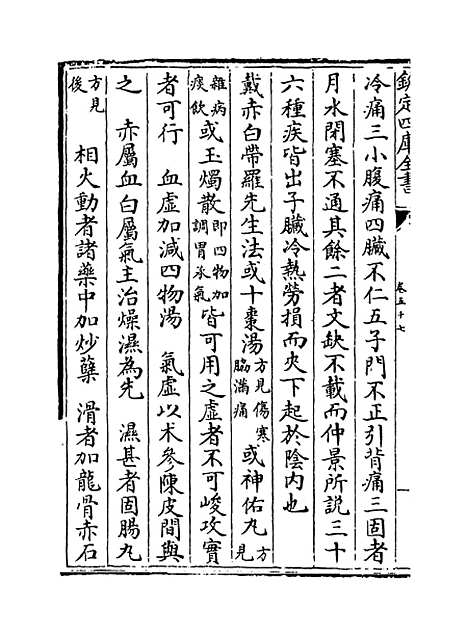 欽定四庫全書
卷五十七
冷痛三小腹痛四臟不仁五子門不正引背痛三固者
月水閉塞不通其餘二者文缺不載而仲景所説三十
六種疾皆出子臟冷熱勞損而夾下起於陰内也
戴赤白帶羅先生法或十棗湯方見傷寒脇滿痛或神佑丸方見
雜病痰飲或玉燭散即四物加調胃承氣皆可用之虚者不可峻攻實
者可行　血虚加減四物湯　氣虚以术參陳皮間與
之　赤屬血白屬氣主治燥濕為先　濕甚者固腸丸
方見後　相火動者諸藥中加炒蘗　滑者加龍骨赤石